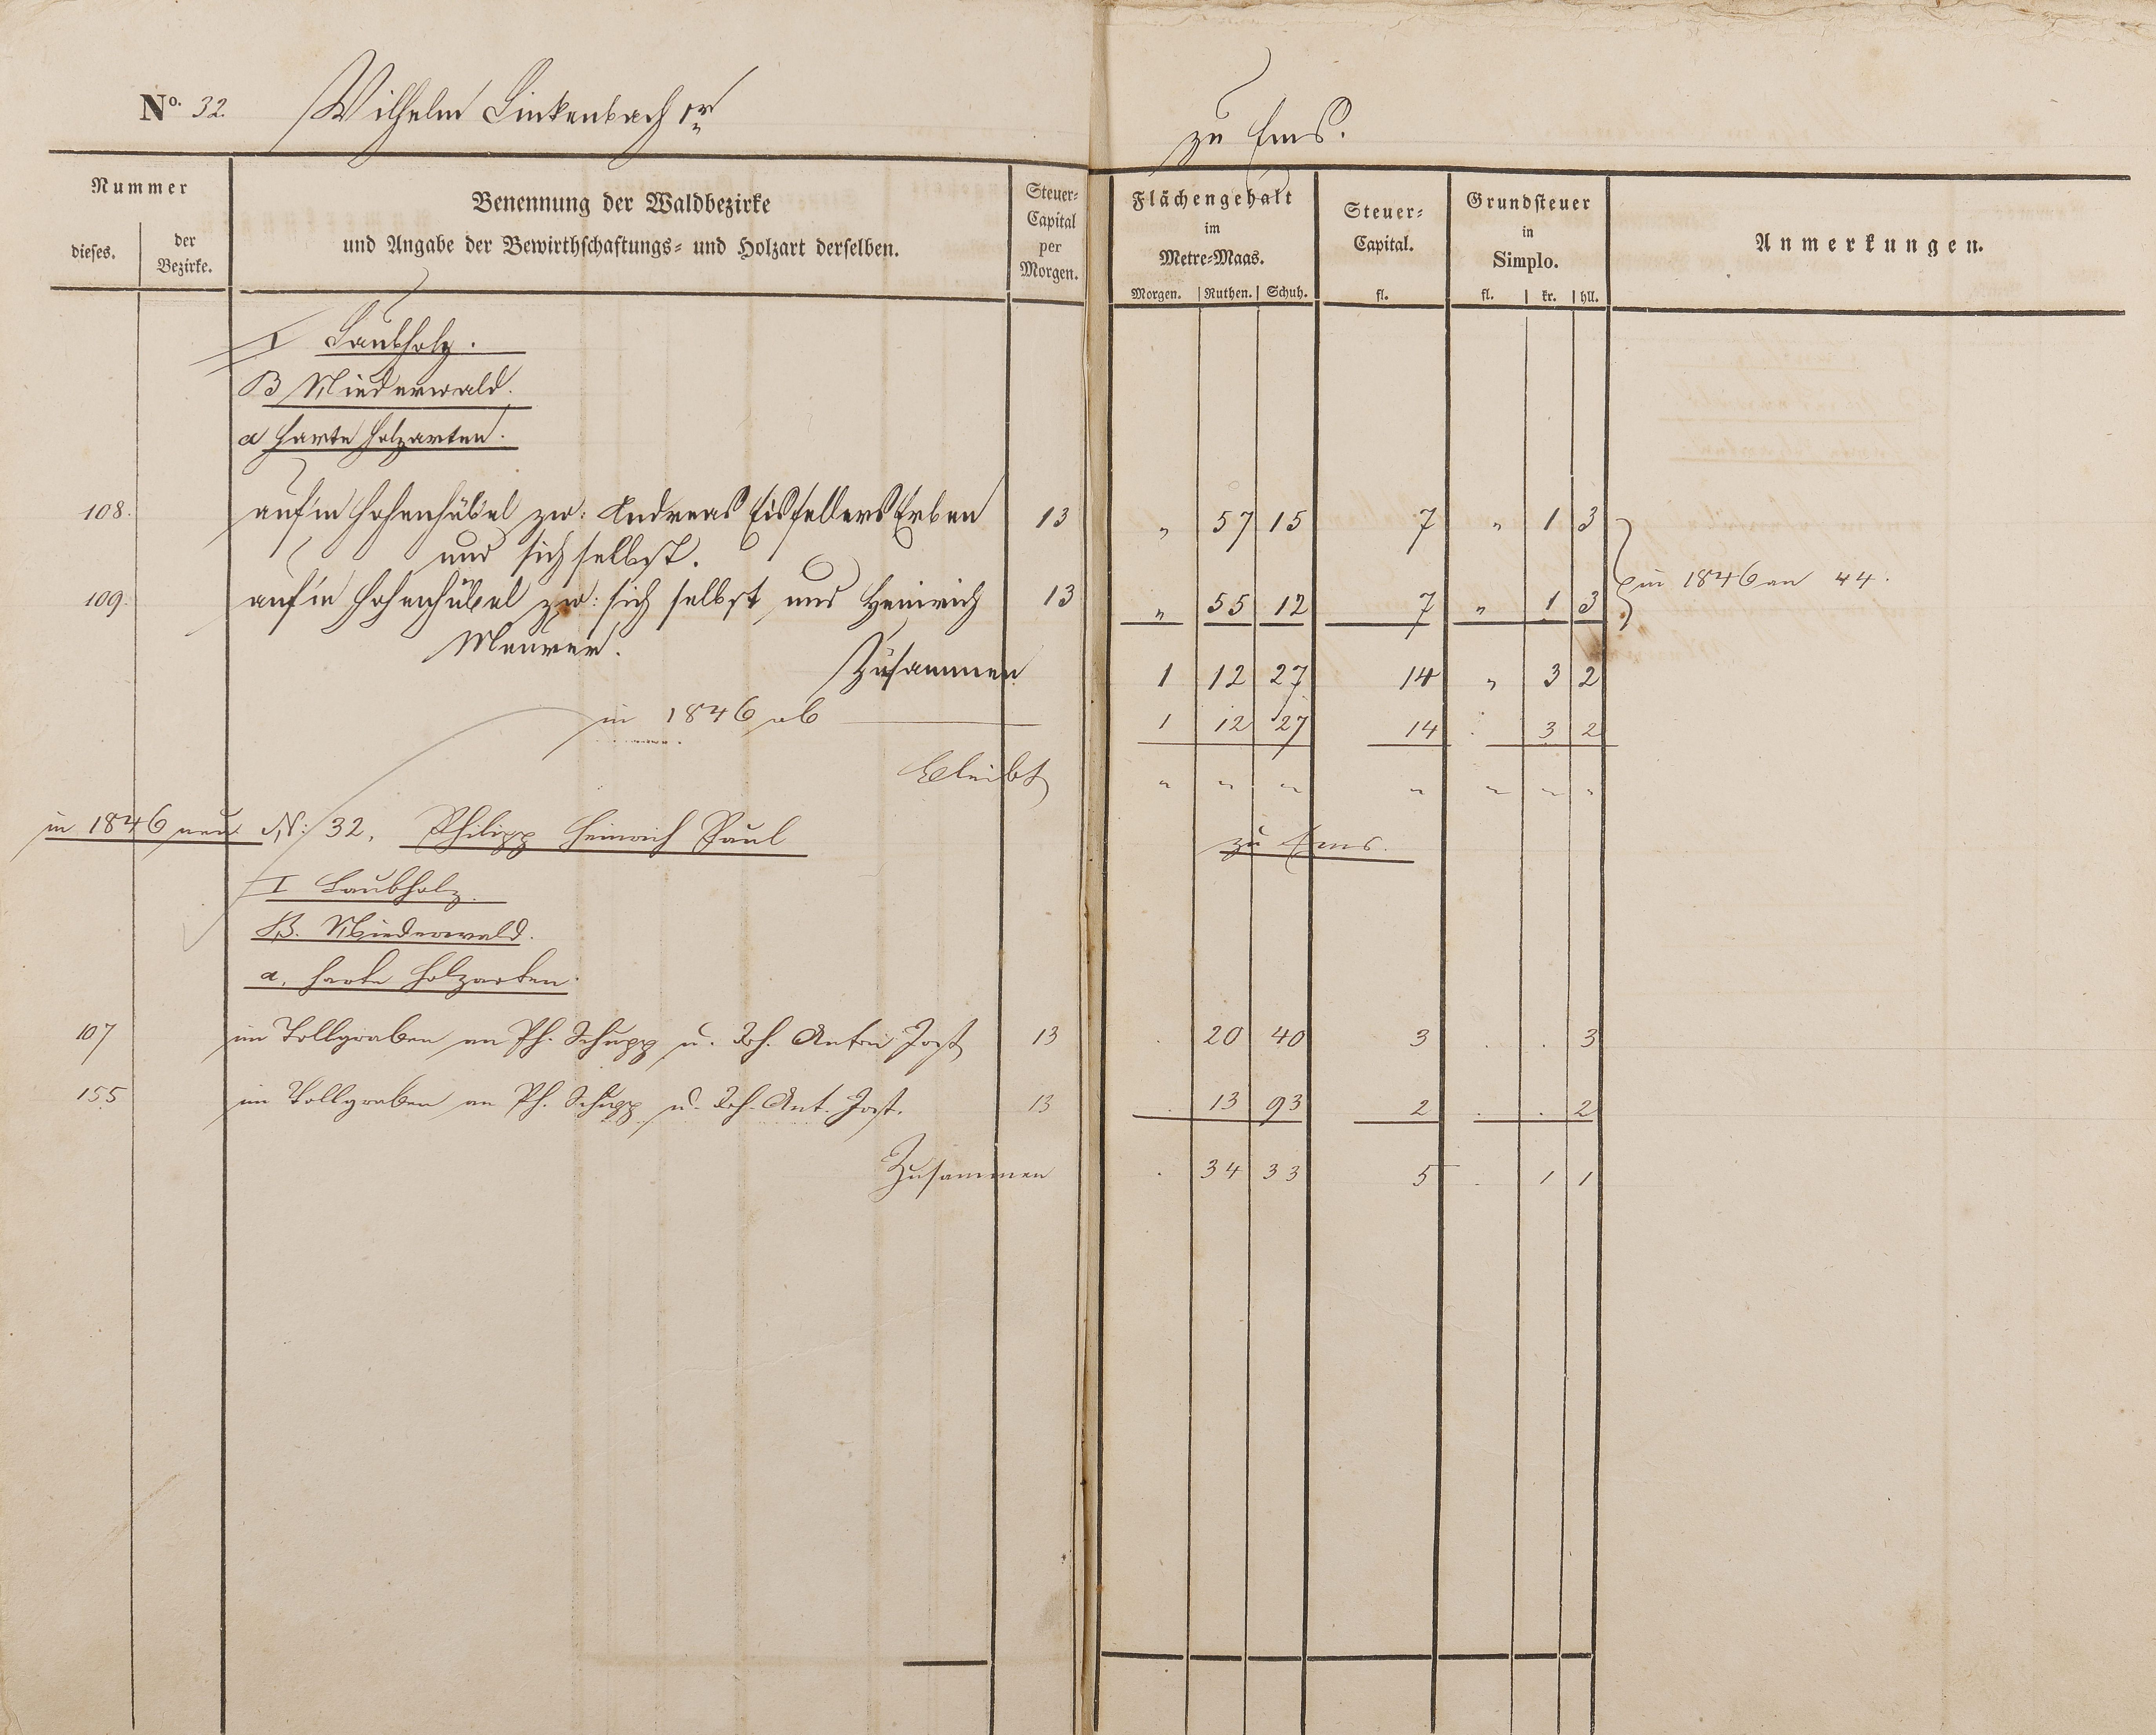 No. 32. Wilhelm Linkenbach 1r zu Ems.
Nummer
dieses.
der Bezirke.
Benennung der Waldbezirke
und Angabe der Bewirthschaftungs- und Holzart derselben.
Steuer-
Capital
per
Morgen.
Flächengehalt
im
Metre-Maas.
Morgen. Ruthen. Schuh.
Steuer-
Capital.
fl.
Grundsteuer
in
Simplo.
fl. kr. hll.
Anmerkungen.
I Laubholz.
B Niederwald.
a harte Holzarten.
108. auf'm Hohenhübel zw: Andreas Eisfellers Erben 13 " 57 15 7 " 1 3
und sich selbst.
in 1846 an 44.
109. auf'm Hohenhübel zw: sich selbst und Heinrich 13 " 55 12 7 " 1 3
Meurer.
Zusammen 1 12 27 14 " 3 2
in 1846 ab 1 12 27 14 . 3 2
bleibt " " " " " " "
in 1846 neu N: 32. Philipp Heinrich Paul zu Ems.
I Laubholz.
B. Niederwald.
a. harte Holzarten.
107 im Tollgraben an Ph. Schupp u. Joh. Anton Jost 13 . 20 40 3 . . 3
155 im Tollgraben an Ph. Schupp u. Joh. Ant. Jost. 13 . 13 93 2 . . 2
Zusammen . 34 33 5 . 1 1